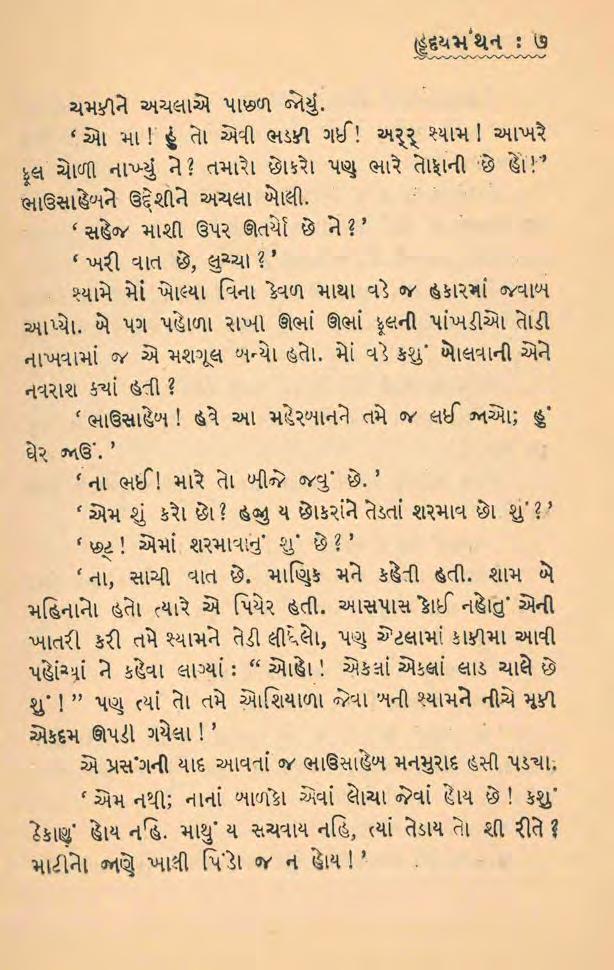 હૃદયમંથન : ૭
ચમકીને અચલાએ પાછળ જોયું.
‘ઓ મા! હું તો એવી ભડકી ગઈ! અરર્‌ર્‌ શ્યામ! આખરે
ફૂલ ચોળી નાખ્યું ને? તમારો છોકરો પણ ભારે તોફાની છે હો!’
ભાઉસાહેબને ઉદ્દેશીને અચલા બોલી.
‘સહેજ માશી ઉપર ઊતર્યો છે ને?’
‘ખરી વાત છે, લુચ્ચા?’
શ્યામે મોં ખોલ્યા વિના કેવળ માથા વડે જ હકારમાં જવાબ
આપ્યો. બે પગ પહોળા રાખી ઊભાં ઊભાં ફૂલની પાંખડીઓ તોડી
નાખવામાં જ એ મશગૂલ બન્યો હતો. મોં વડે કશું બોલવાની એને
નવરાશ ક્યાં હતી?
‘ભાઉસાહેબ! હવે આ મહેરબાનને તમે જ લઈ જાઓ; હું
ઘેર જાઉં.’
‘ના ભઈ! મારે તો બીજે જવું છે.’
‘એમ શું કરો છો? હજી ય છોકરાંને તેડતાં શરમાવ છો શું?’
‘છટ્! એમાં શરમાવાનું શું છે?’
‘ના, સાચી વાત છે. માણિક મને કહેતી હતી. શામ બે
મહિનાનો હતો ત્યારે એ પિયેર હતી. આસપાસ કોઈ નહોતું એની
ખાતરી કરી તમે શ્યામને તેડી લીધેલો, પણ એટલામાં કાકીમા આવી
પહોંચ્યાં ને કહેવા લાગ્યાં : “ઓહો! એકલાં એકલાં લાડ ચાલે છે
શું!” પણ ત્યાં તો તમે ઓશિયાળા જેવા બની શ્યામને નીચે મૂકી
એકદમ ઊપડી ગયેલા!’
એ પ્રસંગની યાદ આવતાં જ ભાઉસાહેબ મનમુરાદ હસી પડ્યા.
‘એમ નથી; નાનાં બાળકો એવાં લોચા જેવાં હોય છે! કશું
ઠેકાણું હોય નહિ. માથું ય સચવાય નહિ, ત્યાં તેડાય તો શી રીતે?
માટીનો જાણે ખાલી પિંડો જ ન હોય!’